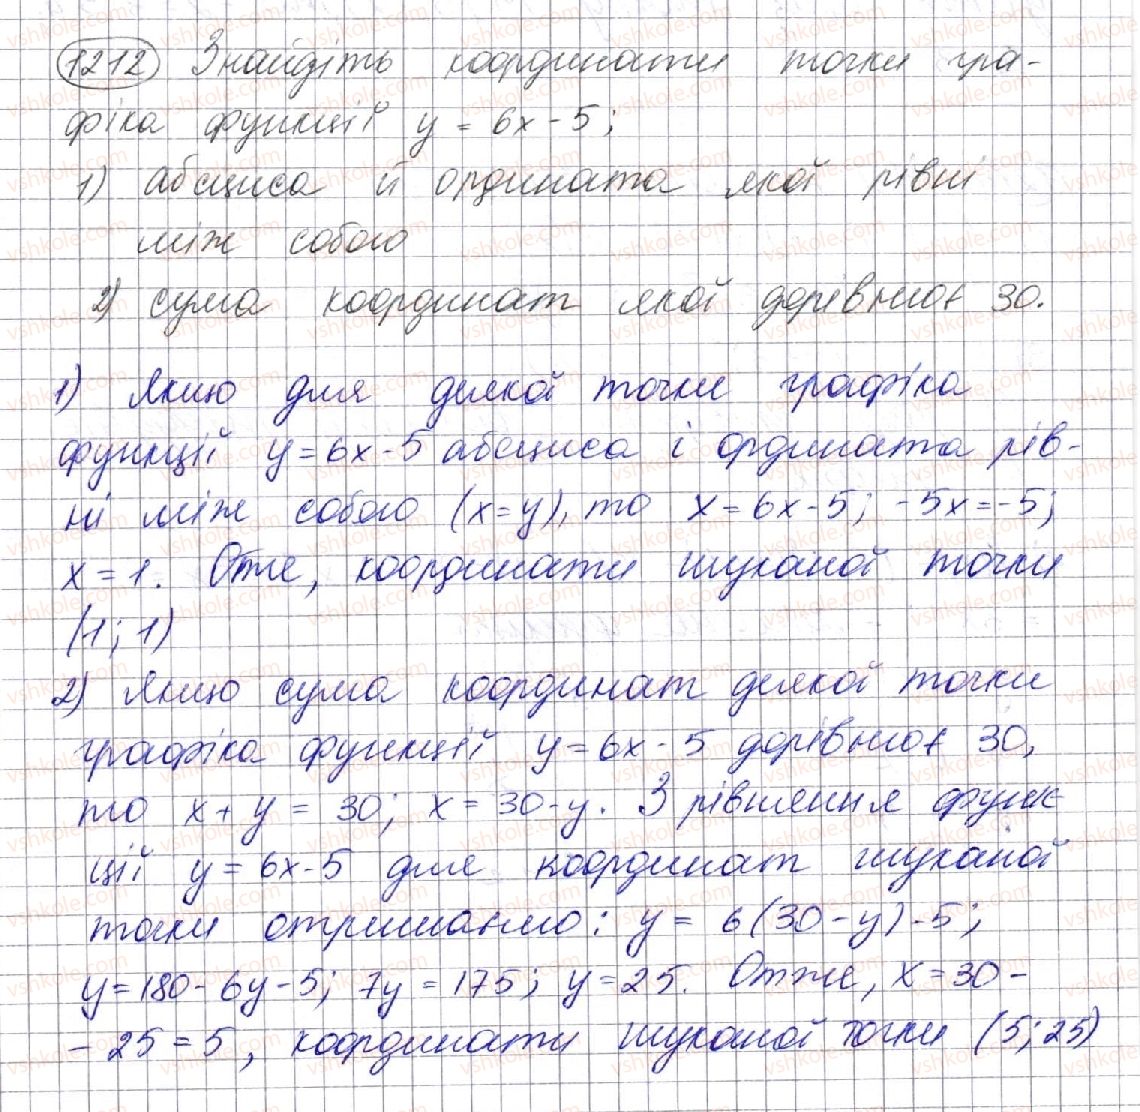 1212 Знайдіть координати точки гра-
фіка функції y = 6x - 5;
1) абсциса й ордината якої рівні
між собою
2) сума координат якої дорівнює 30.
1) Якщо для деякої точки графіка
функції y = 6x - 5 абсциса і ордината рів-
ні між собою (x = y), то x = 6x - 5; -5x = -5;
x = 1. Отже, координати шуканої точки
(1; 1)
2) Якщо сума координат деякої точки
графіка функції y = 6x - 5 дорівнює 30,
то x + y = 30; x = 30 - y. З рівняння функ
ції y = 6x - 5 для координат шуканої
точки отримаємо: y = 6(30 - y) - 5;
y = 180 - 6y - 5; 7y = 175; y = 25. Отже, x = 30 -
- 25 = 5, координати шуканої точки (5; 25)